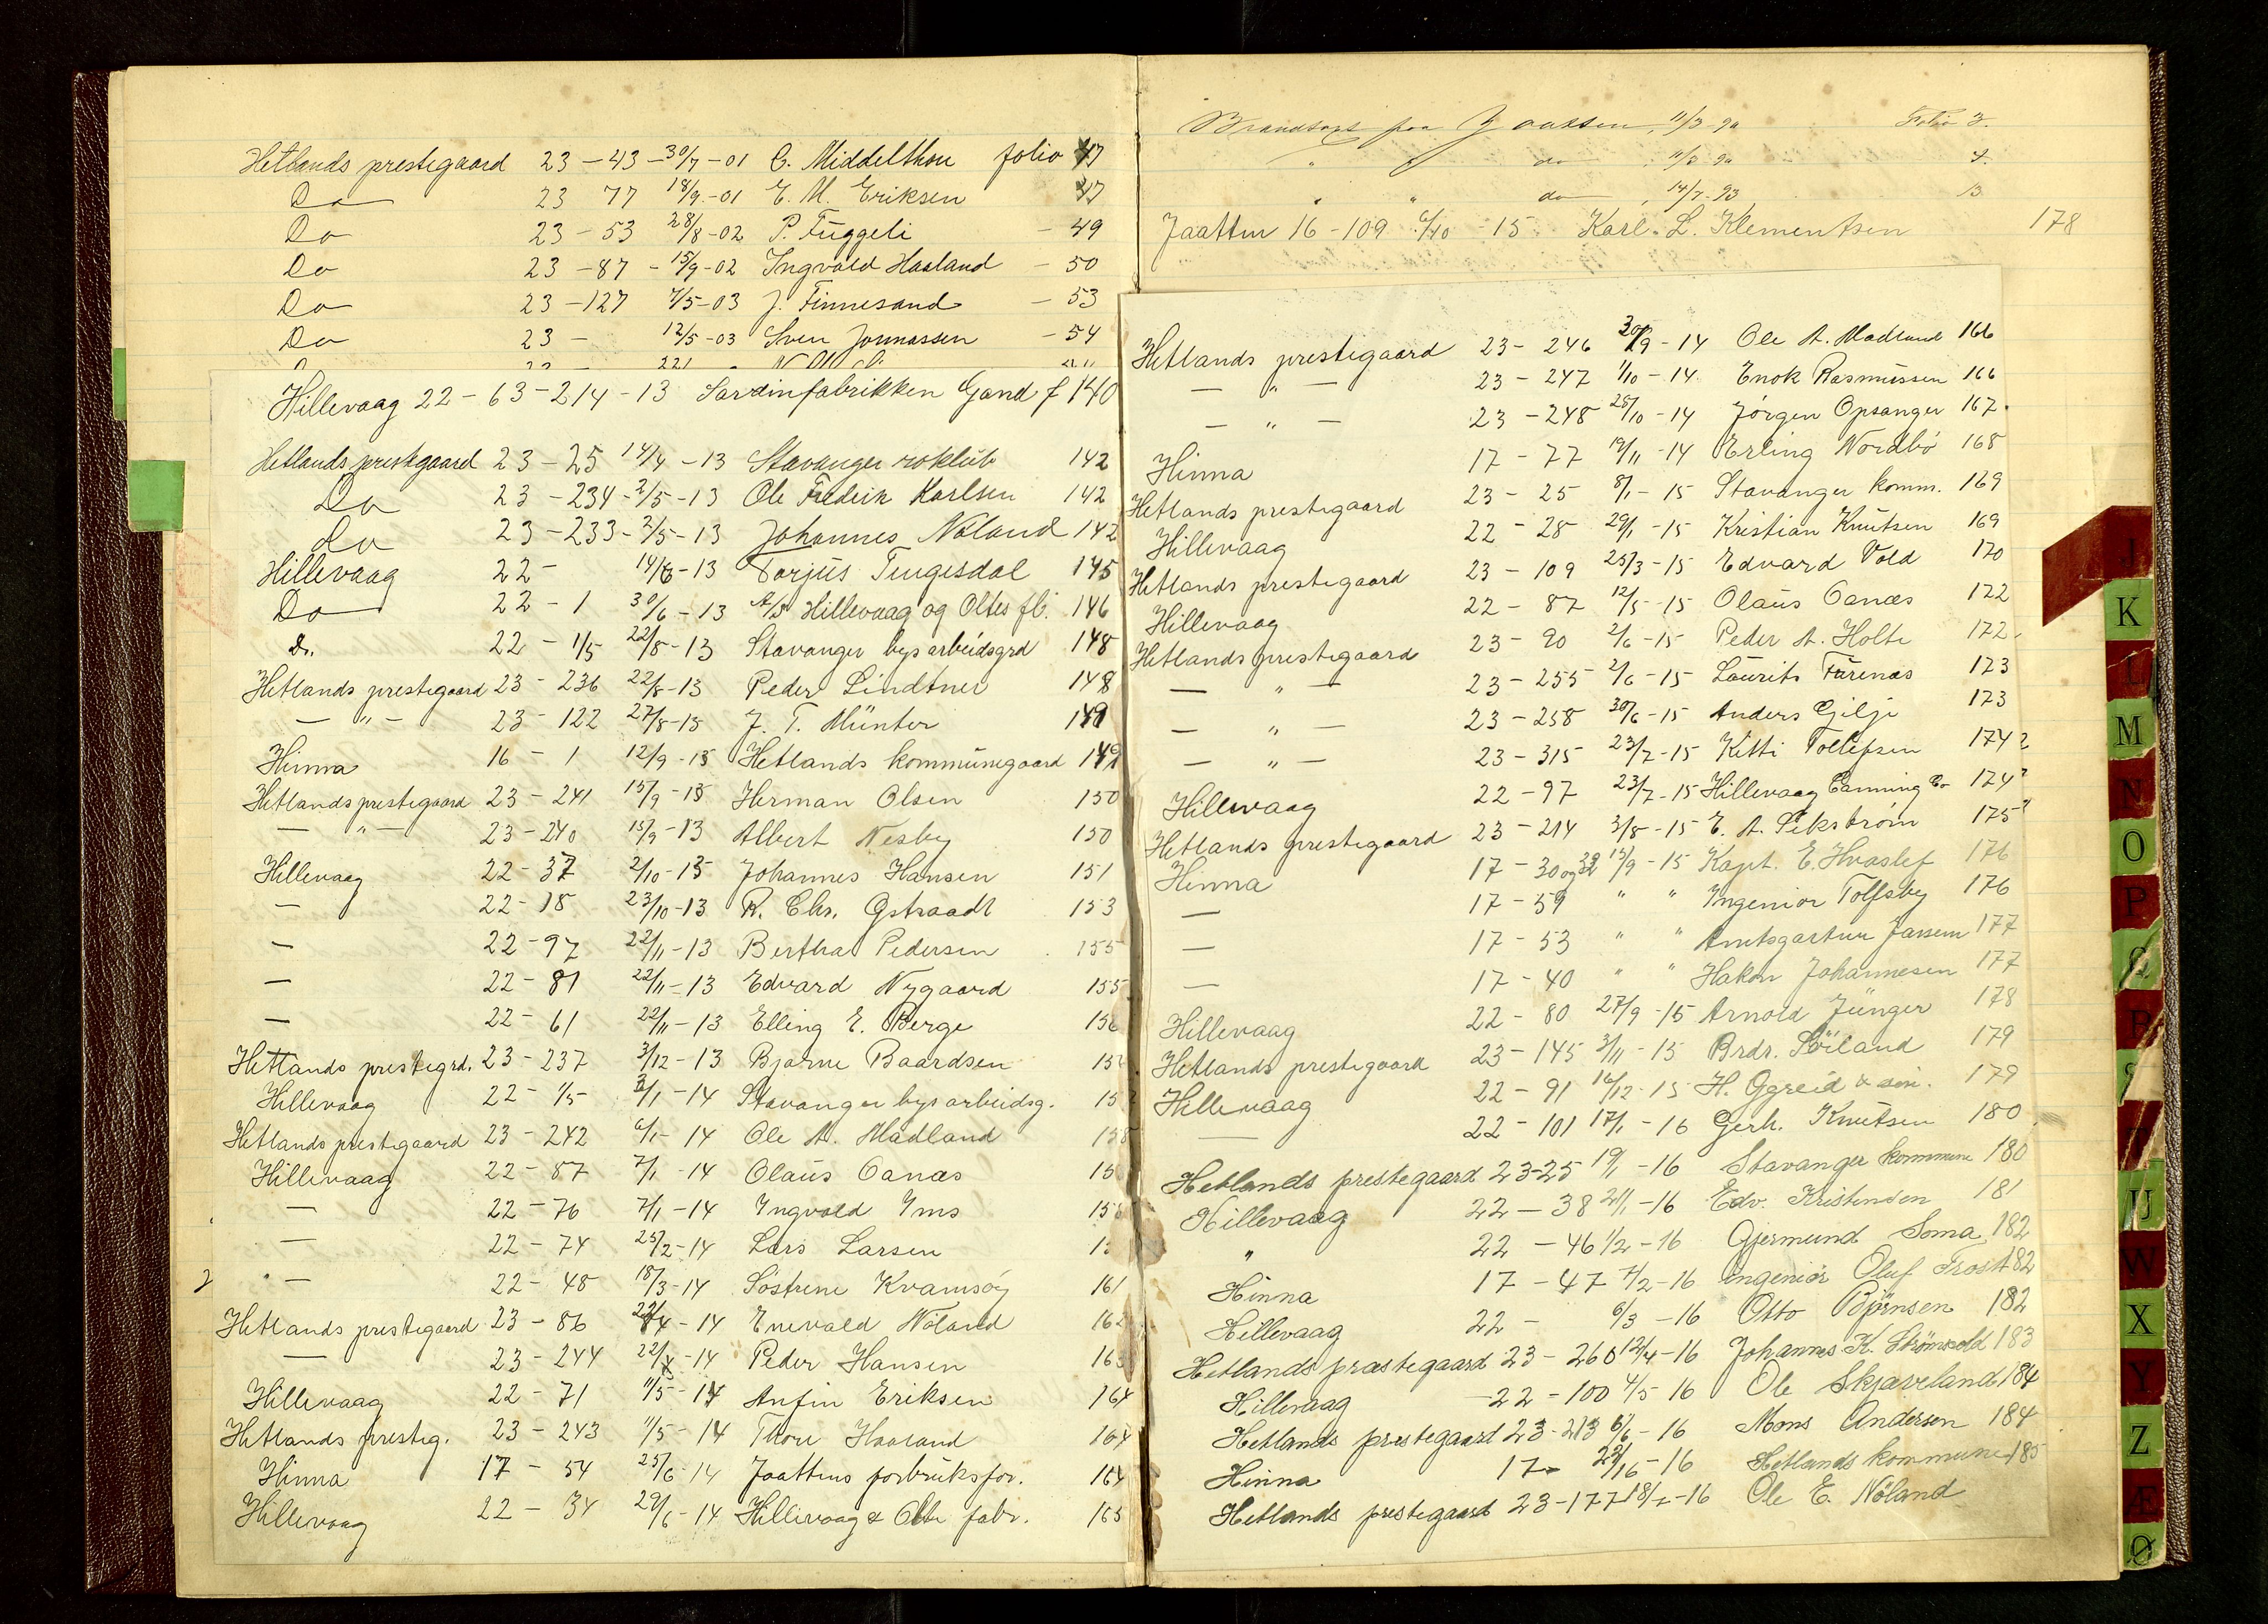 Hetlands prestegaard 23 - 43 - 30/7 - 01 C. Middelthon folio 47
Do 23 77 18/9 - 01 E. M. Eriksen 47
Do 23 - 53 28/8 - 02 P. Tuggeli - 49
Do 23 - 87 - 15/9 - 02 Ingvald Haaland - 50
Do 23 - 127 7/5 - 03 J. Finnesand - 53
Do 23 - 12/5 - 03 Sven Jonnassen - 54
Hillevaag 22 - 63 - 21/4 - 13 Sardinfabrikken Gand f 140
Hetlands prestegaard 23 - 25 14/4 - 13 Stavanger roklub 142
Do 23 - 234 - 2/5 - 13 Ole Fredrik Karlsen 142
do 23 - 233 - 2/5 - 13 Johannes Nøland 142
Hillevaag 22 - 14/6 - 13 Torjus Tengesdal 145
Do 22 - 1 30/6 - 13 A/S Hillevaag og Oltes fb. 146
Do. 22 - 1/5 22/8 - 13 Stavanger bys arbeidsgrd 148
Hetlands prestegaard 23 - 236 22/8 - 13 Peder Lindtner 148
— " — 23 - 122 27/8 - 13 J. T. Münter 149
Hinna 16 - 1 12/9 - 13 Hetlands kommunegaard 149
Hetlands prestegaard 23 - 241 15/9 - 13 Herman Olsen 150
— " — 23 - 240 15/9 - 13 Albert Nesby 150
Hillevaag 22 - 37 2/10 - 13 Johannes Hansen 151
— 22 - 18 23/10 - 13 R. Chr. Gstraadt 153
— 22 - 97 22/11 - 13 Bertha Pedersen 155
— 22 - 81 22/11 - 13 Edvard Nygaard 155
— 22 - 61 22/11 - 13 Elling E. Berge 156
Hetlands prestegrd. 23 - 237 3/12 - 13 Bjarne Baardsen 15
Hillevaag 22 - 1/5 3/1 - 14 Stavanger bys arbeidsg. 15
Hetlands prestegaard 23 - 242 6/1 - 14 Ole A. Madland 158
Hillevaag 22 - 87 7/1 - 14 Olaus Oanæs 15
— 22 - 76 7/1 - 14 Ingvald Ims 15
— 22 - 74 25/2 - 14 Lars Larsen 1
— 22 - 48 18/3 - 14 Söstrene Kvamsöy 161
Hetlands prestegaard 23 - 86 22/4 - 14 Enevald Nöland 162
— 23 - 244 22/4 - 14 Peder Hansen 163
Hillevaag 22 - 71 11/5 - 14 Anfin Eriksen 164
Hetlands presteg. 23 - 243 11/5 - 14 Thore Haaland 164
Hinna 17 - 54 25/6 - 14 Jaattens forbruksfor. 164
Hillevaag 22 - 34 29/6 - 14 Hillevaag & Olte fabr. 165
Brandtaxt paa Jaatten, 11/3 - 90 Folio 3.
" " do , 11/3 - 90 4.
" " do , 14/7 - 93 13
Jaatten 16 - 109 6/10 - 15 Karl. L. Klementsen 178
Hetlands prestegaard 23 - 246 30/9 - 14 Ole A. Madland 166
— " — 23 - 247 1/10 - 14 Enok Rasmussen 166
— " — 23 - 248 28/10 - 14 Jörgen Opsanger 167.
Hinna 17 - 77 19/11 - 14 Erling Nordbö 168
Hetlands prestegaard 23 - 25 8/1 - 15 Stavanger komm. 169
Hillevaag 22 - 28 29/1 - 15 Kristian Knutsen 169
Hetlands prestegaard 23 - 109 25/3 - 15 Edvard Vold 170
Hillevaag 22 - 87 12/5 - 15 Olaus Oanæs 172
Hetlands prestegaard 23 - 90 2/6 - 15 Peder A. Holte 172
— " — 23 - 255 2/6 - 15 Laurits Furenæs 173
— " — 23 - 258 30/6 - 15 Anders Gilje 173
— " — 23 - 315 23/7 - 15 Kitti Tollefsen 174
Hillevaag 22 - 97 23/7 - 15 Hillevaag Canning Co 174
Hetlands prestegaard 23 - 214 3/8 - 15 E. A. Sekström 175
Hinna 17 - 30 og 32 15/9 - 15 Kapt. E. Hvaslef 176
— 17 - 59 " " Ingeniör Tolfsby 176
— 17 - 53 " " Amtsgartner Jansen 177
— 17 - 40 " " Hakon Johannesen 177
Hillevaag 22 - 80 27/9 - 15 Arnold Jünger 178
Hetlands prestegaard 23 - 145 3/11 - 15 Brdr. Söiland 179
Hillevaag 22 - 91 16/12 - 15 H. Ggreid & sön. 179
— 22 - 101 17/1 - 16 Gerh. Knutsen 180
Hetlands prestegaard 23-25 19/1 - 16 Stavanger kommune 180
Hillevaag 22 - 38 21/1 - 16 Edv. Kristensen 181
" 22 - 46 1/2 - 16 Gjermund Soma 182
Hinna 17 - 47 7/2 - 16 ingeniör Oluf Trost 182
Hillevaag 22 - 6/3 - 16 Otto Bjørnsen 182
Hetlands præstegaard 23 - 260 12/4 - 16 Johannes K. Strömvold 183
Hillevaag 22 - 100 4/5 16 Ole Skjæveland 184
Hetlands prestegaard 23 - 213 6/6 - 16 Mons Andersen 184
Hinna 17 - - 16 Hetlands kommune 185
Hetlands prestegaard 23 - 177 18/7 - 16 Ole E. Nöland
J
K
L
M
N
O
P
Q
R
S
T
U
W
X
Y
Z
Æ
Ø